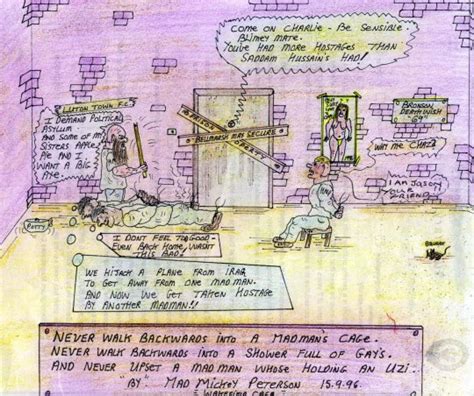 COME ON CHARLIE - BE SENSIBLE.
BLIMEY MATE.
YOUVE HAD MORE HOSTAGES THAN
SADDAM HUSSAIN'S HAD!
LUTON TOWN F.C.
I DEMAND POLITICAL
ASYLUM
AND SOME OF MY
SISTERS APPLE
PIE AND I
WANT A BIG
AXE.
PRISON
BELMARSH MAX SECURE
PROPERTY
BRONSON
DEATHWISH
WIV ME CHAZ?
I AM JASON
YOUR
FRIEND
POTTY
I DONT FEEL TO GOOD -
EVEN BACK HOME WASNT
THIS BAD!
WE HIJACK A PLANE FROM IRAQ
TO GET AWAY FROM ONE MADMAN.
AND NOW WE GET TAKEN HOSTAGE
BY ANOTHER MADMAN!!
NEVER WALK BACKWARDS INTO A MADMAN'S CAGE.
NEVER WALK BACKWARDS INTO A SHOWER FULL OF GAY'S.
AND NEVER UPSET A MADMAN WHOSE HOLDING AN UZI.
BY MAD MICKEY PETERSON 15.9.96.